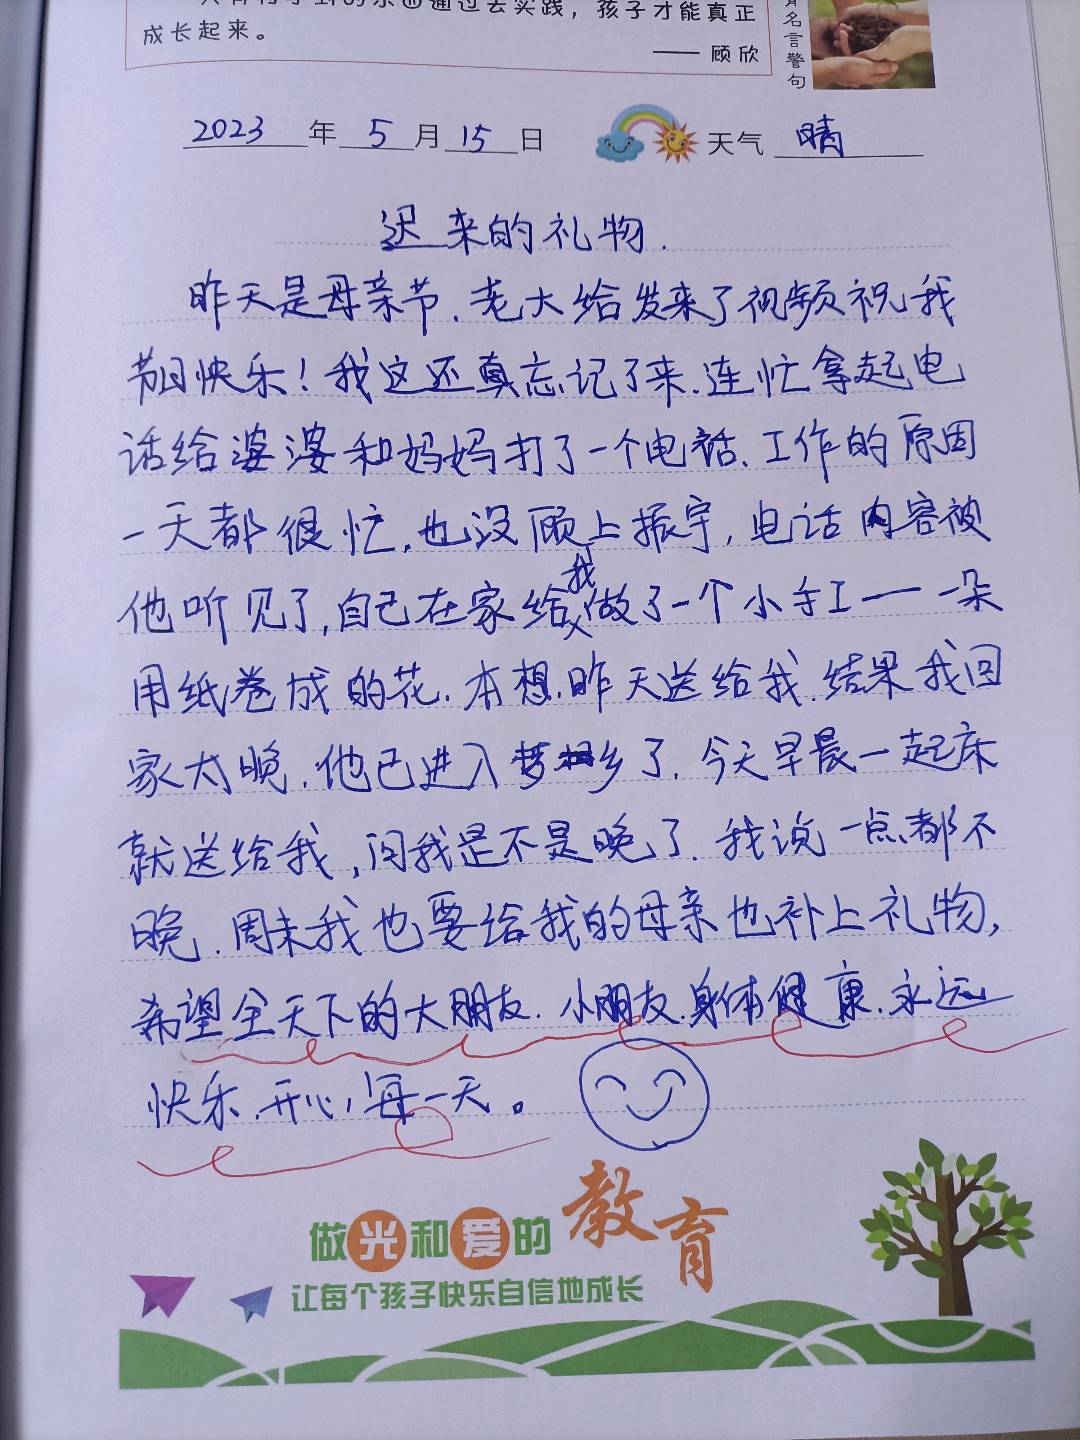 到的东西通过去实践，孩子才能真正
成长起来。
—— 顾欣
名言警句
2023年5月15日 天气 晴
迟来的礼物.
昨天是母亲节.老大给发来了视频祝我
节日快乐！我这还真忘记了来.连忙拿起电
话给婆婆和妈妈打了一个电话.工作的原因
一天都很忙,也没顾上振宇,电话内容被
他听见了,自己在家给我做了一个小手工——一朵
用纸卷成的花.本想.昨天送给我.结果我回
家太晚.他已进入梦乡了.今天早晨一起床
就送给我,问我是不是晚了.我说一点都不
晚.周末我也要给我的母亲也补上礼物,
希望全天下的大朋友.小朋友.身体健康.永远
快乐.开心,每一天。
做光和爱的教育
让每个孩子快乐自信地成长